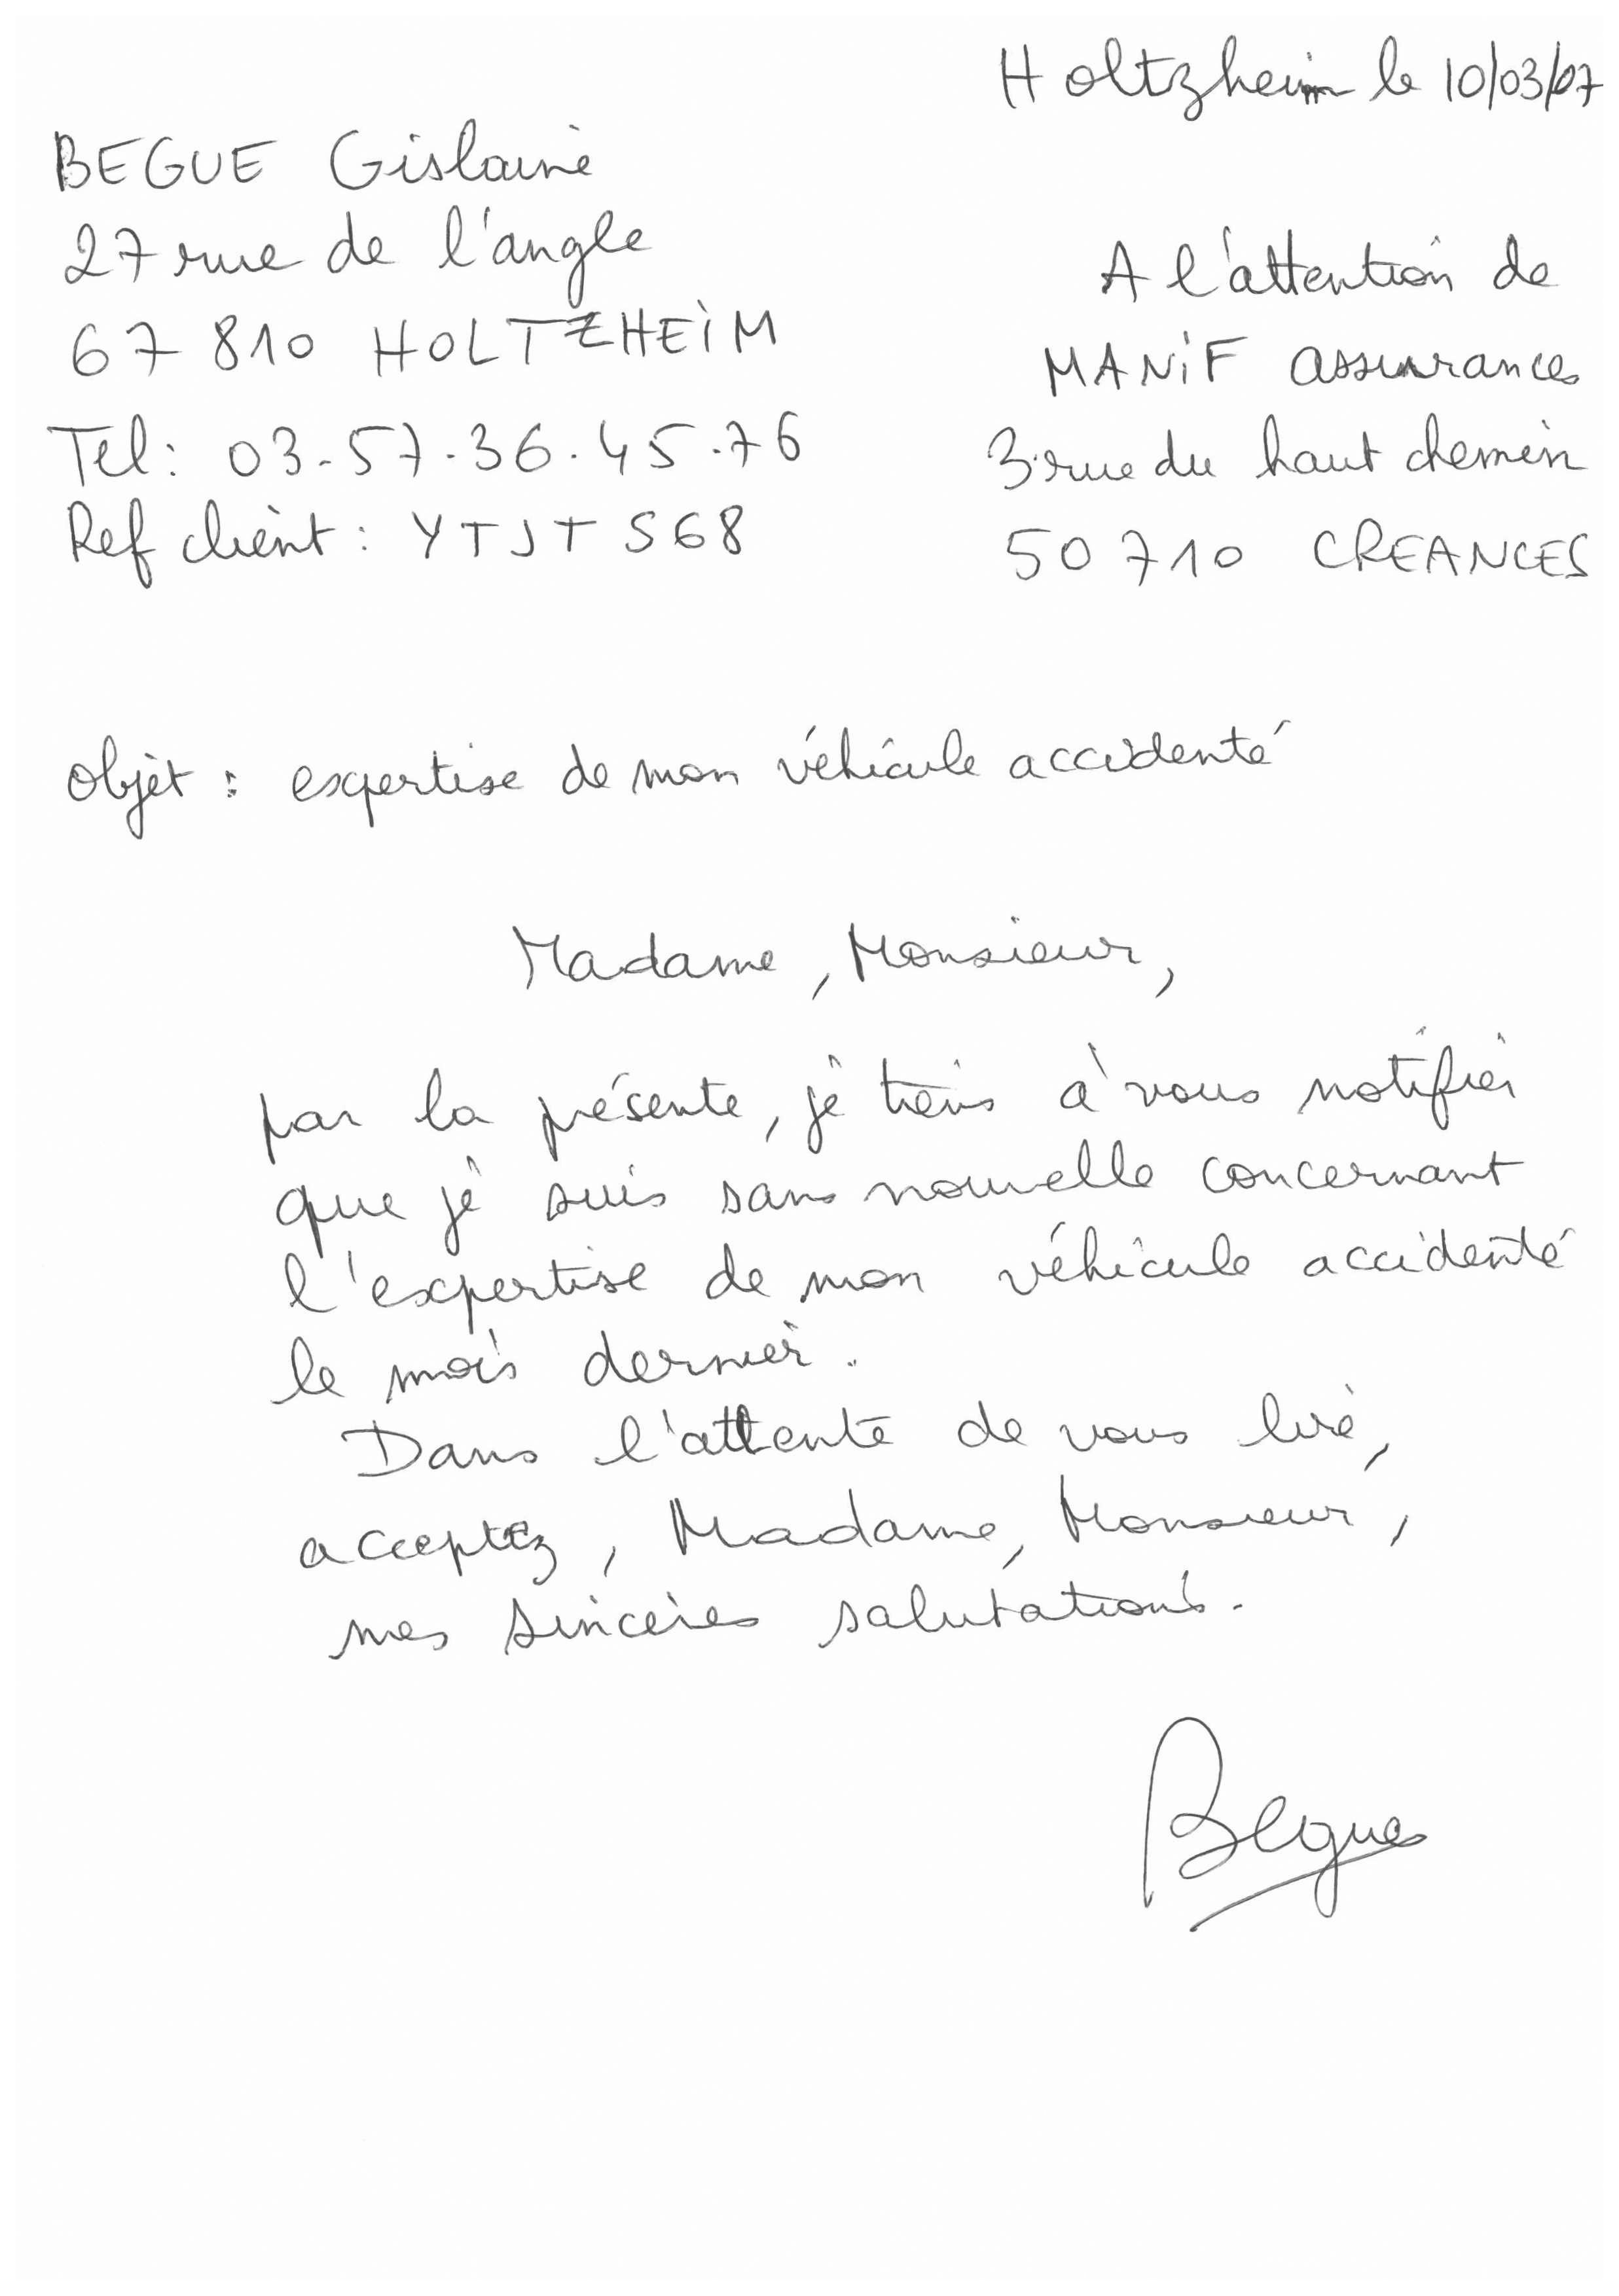 Holtzheim le 10/03/07
BEGUE Gislaine
27 rue de l'angle
67 810 HOLTZHEIM
Tel: 03.57.36.45.76
Ref client : YTJT S68
A l'attention de
MANIF assurances
3 rue du haut chemin
50 710 CREANCES
objet : expertise de mon véhicule accidenté
Madame, Monsieur,
par la présente, je tiens à vous notifier
que je suis sans nouvelle concernant
l'expertise de mon véhicule accidenté
le mois dernier.
Dans l'attente de vous lire,
acceptez, Madame, Monsieur,
mes sincères salutations.
Begue